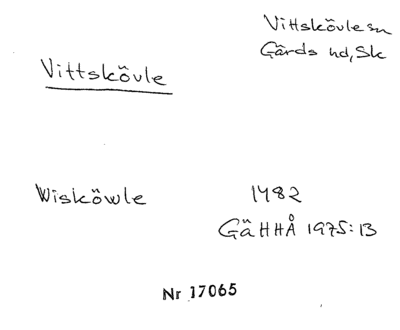 Vittskövle sn
Gärds hd, Sk
Vittskövle
Wisköwle 1482
GäHHÅ 1975:13
Nr 17065